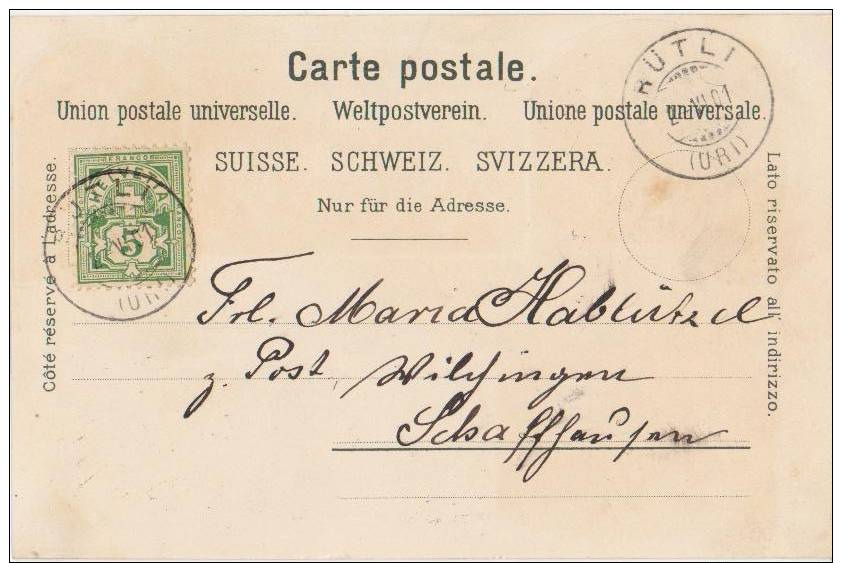 Carte postale.
Union postale universelle. Weltpostverein. Unione postale universale.
SUISSE. SCHWEIZ. SVIZZERA.
Nur für die Adresse.
RÜTLI
VI.01
(URI)
Côté réservé à l'adresse.
Lato riservato all' indirizzo.
FRANCO
HELVETIA
5
(URI)
Frl. Maria Hablützel
z. Post, Wilchingen
Schaffhausen